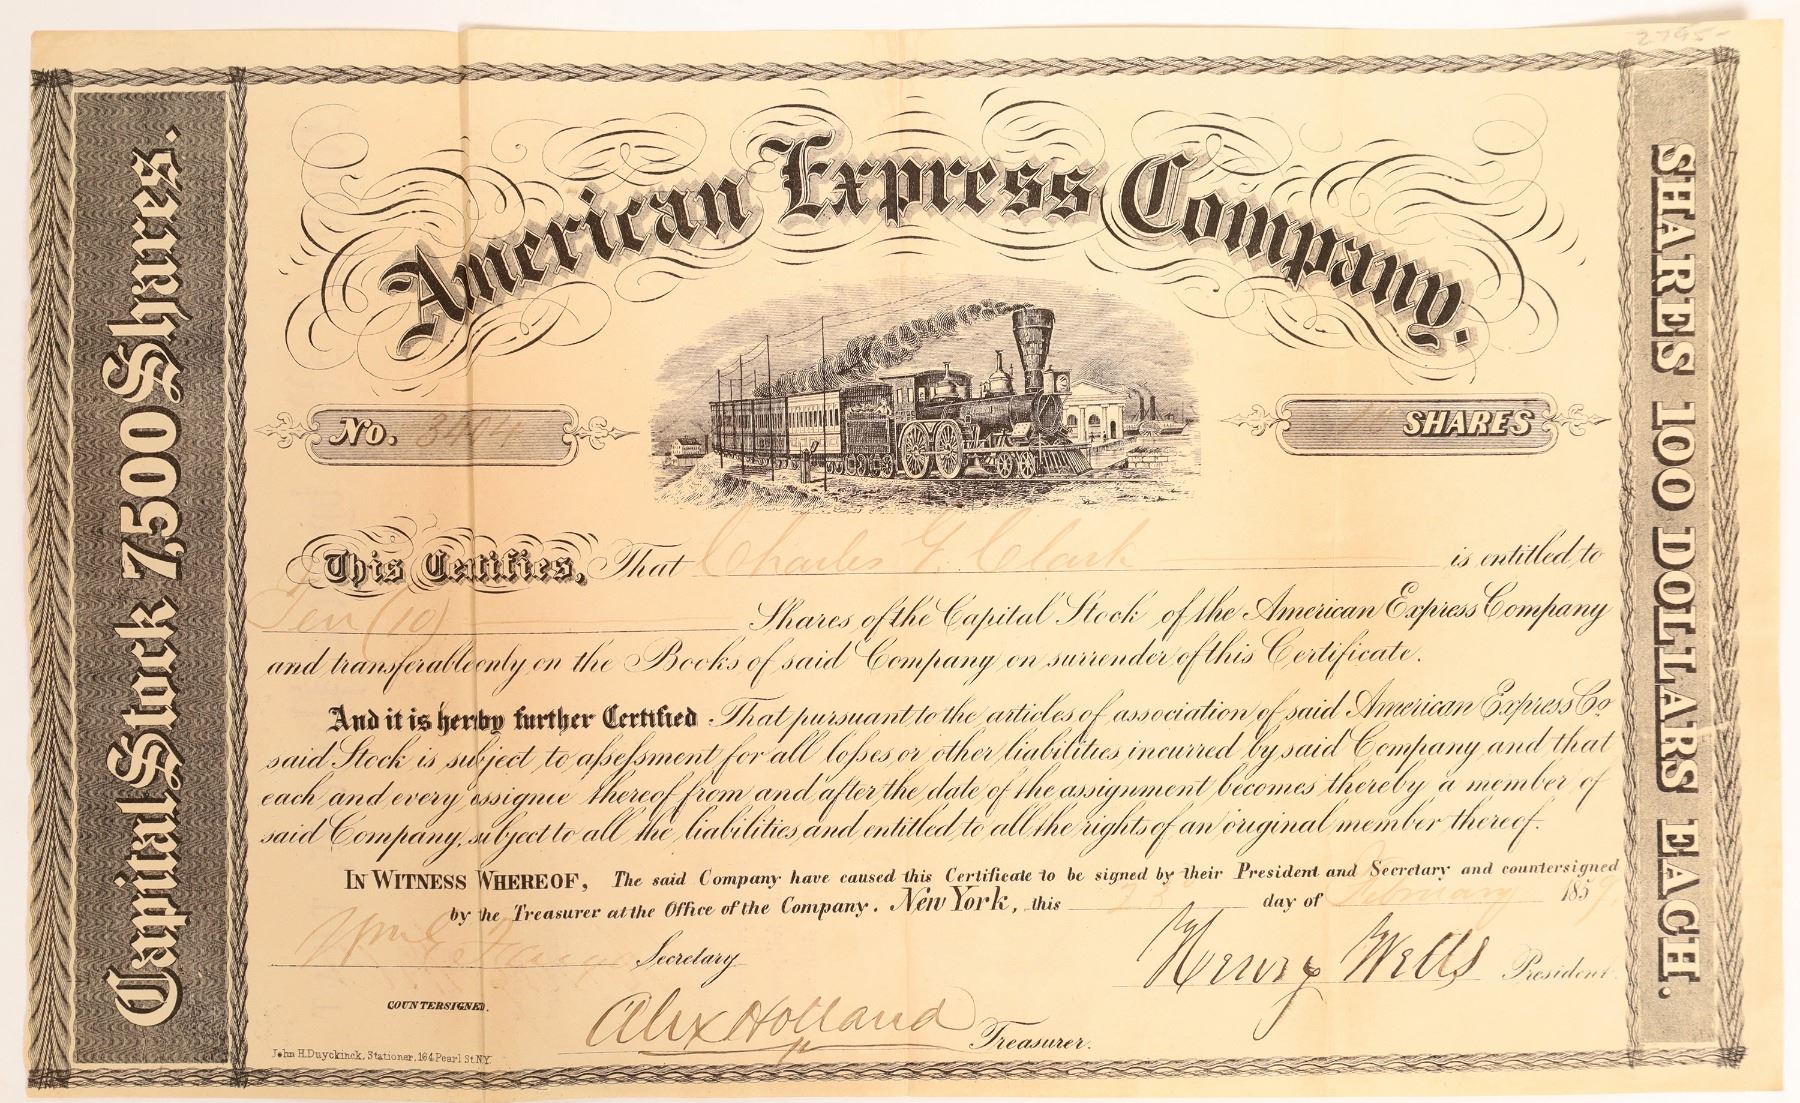 2795-
American Express Company.
Capital Stock 7,500 Shares.
SHARES 100 DOLLARS EACH.
No. 3404
10 SHARES
This Certifies, That Charles G. Clark is entitled to
Ten (10) Shares of the Capital Stock of the American Express Company
and transferable only on the Books of said Company on surrender of this Certificate.
And it is hereby further Certified. That pursuant to the articles of association of said American Express Co.
said Stock is subject to assessment for all losses or other liabilities incurred by said Company and that
each and every assignee thereof from and after the date of the assignment becomes thereby a member of
said Company, subject to all the liabilities and entitled to all the rights of an original member thereof.
IN WITNESS WHEREOF, The said Company have caused this Certificate to be signed by their President and Secretary and countersigned
by the Treasurer at the Office of the Company. New York, this day of February 1859.
Wm G Fargo Secretary
Henry Wells President
COUNTERSIGNED.
Alex Holland Treasurer.
John H. Duyckinck, Stationer, 164 Pearl St. N.Y.